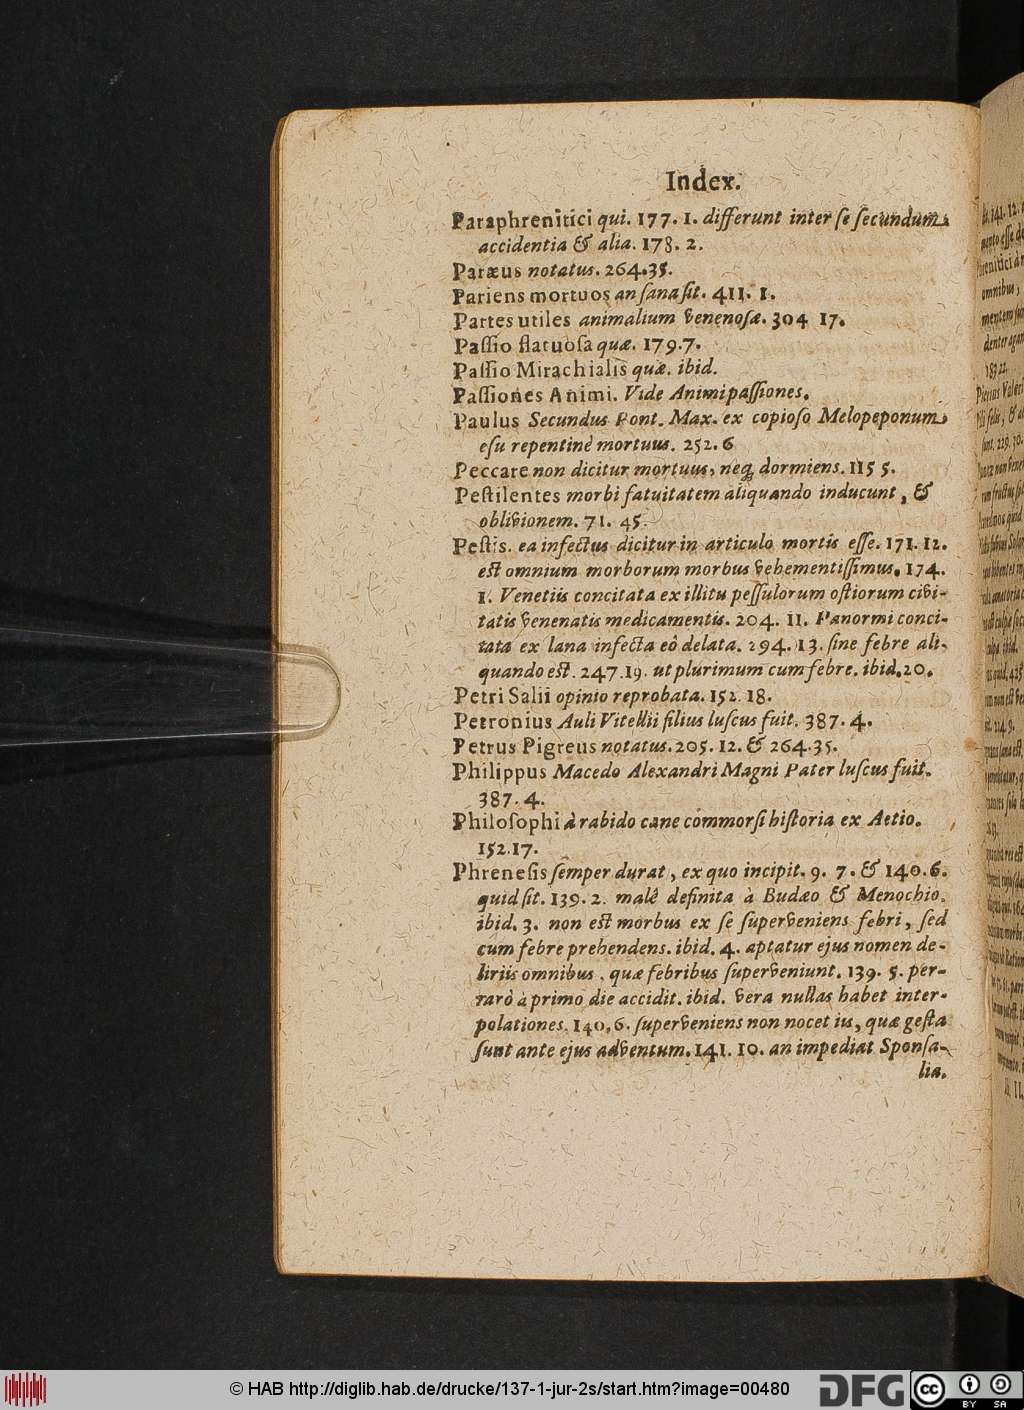 Index.
Paraphrenitici qui. 177. 1. differunt inter ſe ſecundum
accidentia & alia. 178. 2.
Paræus notatus. 264.35.
Pariens mortuos an ſana ſit. 411. 1.
Partes utiles animalium venenoſæ. 304 17.
Paſſio flatuoſa quæ. 179.7.
Paſſio Mirachialis quæ. ibid.
Paſſiones Animi. Vide Animi paſſiones.
Paulus Secundus Pont. Max. ex copioſo Melopeponum
eſu repentinè mortuus. 252.6
Peccare non dicitur mortuus, neq; dormiens. 115 5.
Peſtilentes morbi fatuitatem aliquando inducunt, &
oblivionem. 71. 45.
Peſtis. ea infectus dicitur in articulo mortis eſſe. 171. 12.
eſt omnium morborum morbus vehementiſſimus. 174.
1. Venetiis concitata ex illitu peſſulorum oſtiorum civi-
tatis venenatis medicamentis. 204. 11. Panormi conci-
tata ex lana infecta eò delata. 294. 13. ſine febre ali-
quando eſt. 247.19. ut plurimum cum febre. ibid.20.
Petri Salii opinio reprobata. 152. 18.
Petronius Auli Vitellii filius luſcus fuit. 387. 4.
Petrus Pigreus notatus. 205. 12. & 264.35.
Philippus Macedo Alexandri Magni Pater luſcus fuit.
387. 4.
Philoſophi à rabido cane commorſi hiſtoria ex Aetio.
152.17.
Phreneſis ſemper durat, ex quo incipit. 9. 7. & 140.6.
quid ſit. 139. 2. malè definita à Budæo & Menochio.
ibid. 3. non eſt morbus ex ſe ſuperveniens febri, ſed
cum febre prehendens. ibid. 4. aptatur ejus nomen de-
liriis omnibus, quæ febribus ſuperveniunt. 139. 5. per-
rarò à primo die accidit. ibid. vera nullas habet inter-
polationes. 140.6. ſuperveniens non nocet iis, quæ geſta
ſunt ante ejus adventum. 141. 10. an impediat Sponſa-
lia.
© HAB http://diglib.hab.de/drucke/137-1-jur-2s/start.htm?image=00480
DFG
CC
BY SA